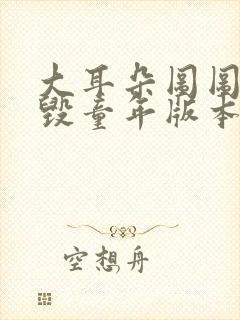 大耳朵图图
毁童年版本
空想舟